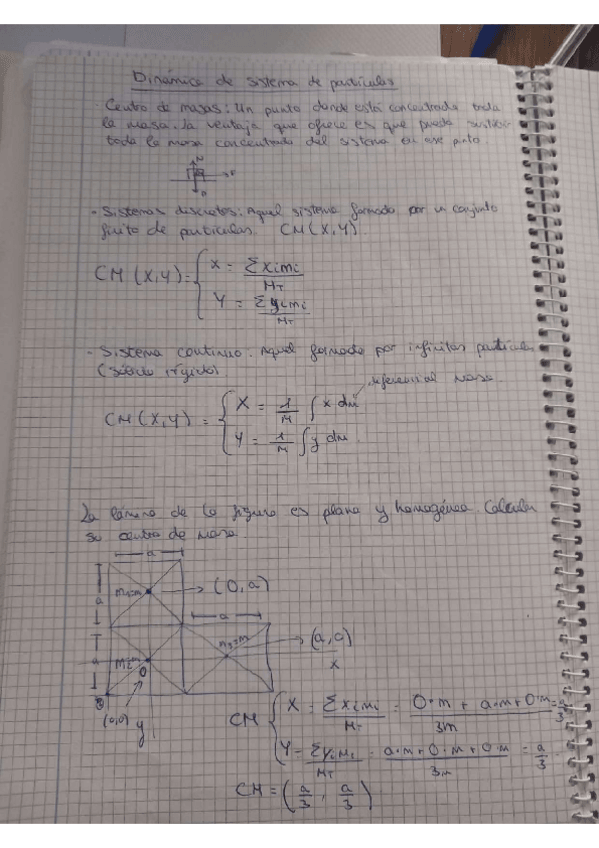 Dinámica de sistema de partículas
Centro de masas: Un punto donde está concentrada toda
la masa. La ventaja que ofrece es que pueda sustituir
toda la masa concentrada del sistema en ese punto
N
P
- Sistemas discretos: Aquel sistema formado por un conjunto
finito de partículas. CM (X,Y).
CM (X,Y) = { X = Σximi / MT
Y = Σyimi / MT
- Sistema continuo: Aquel formado por infinitas partículas
(sólido rígido).
masa
CM (X,Y) = { X = 1/M ∫ x dm
Y = 1/M ∫ y dm
La lámina de la figura es plana y homogénea. Calcular
su centro de masa
a
a m1=m (0,a)
a
a m2=m 0 m3=m (a,0)
x
(0,0) y
CM { X = Σximi / MT = 0·m + a·m + 0·m / 3m = a/3
Y = Σyimi / MT = a·m + 0·m + 0·m / 3m = a/3
CM = (a/3, a/3)